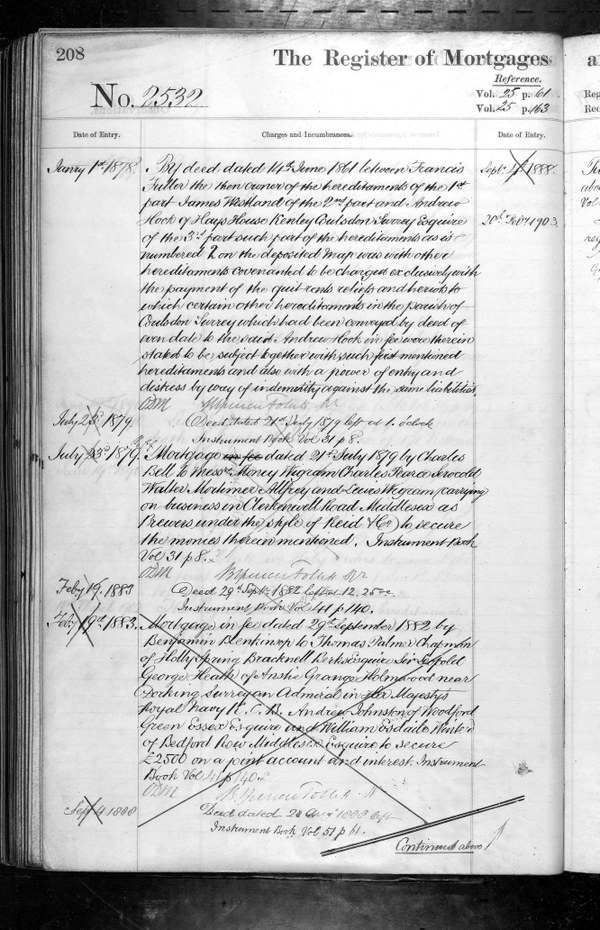 208
The Register of Mortgages
Reference.
No. 2532
Vol. 25 p. 61
Vol. 25 p. 163
Date of Entry.
Charges and Incumbrances.
Date of Entry.
Janry 1st 1878.
By deed dated 14th June 1861 between Francis
Fuller the then owner of the hereditaments of the 1st
part James Westland of the 2nd part and Andrew
Hook of Hays House Kenley Coulsdon Surrey Esquire
of the 3rd part such part of the hereditaments as is
numbered 2 on the deposited map was with other
hereditaments covenanted to be charged exclusively with
the payment of the quit rents reliefs and heriots to
which certain other hereditaments in the parish of
Coulsdon Surrey which had been conveyed by deed of
even date to the said Andrew Hook in fee were therein
stated to be subject together with such first mentioned
hereditaments and also with a power of entry and
distress by way of indemnity against the same liabilities.
Sept. 1888.
20th Feby 1903.
July 23d 1879
Deed dated 21st July 1879 left at 1. o'clock
Instrument Book Vol 31 p 8.
July 23d 1879.
Mortgage in fee dated 21st July 1879 by Charles
Bell to Messrs. Money Wigram Charles Pearce Serocold
Walter Mortimer Allfrey and Lewis Wigram (carrying
on business in Clerkenwell Road Middlesex as
Brewers under the style of Reid & Co.) to secure
the monies therein mentioned. Instrument Book
Vol 31 p 8.
Feby 19. 1883
Deed 29th Septr. 1882 left at 12.25
Instrument Book Vol 41 p 140.
Feby 19th 1883.
Mortgage in fee dated 29th September 1882 by
Benjamin Blenkinsop to Thomas Palmer Chapman
of Holly Spring Bracknell Berks Esquire Sir
George Heath of Anstie Grange Holmwood near
Dorking Surrey an Admiral in Her Majesty's
Royal Navy K. C. B. Andrew Johnston of Woodford
Green Essex Esquire and William Esdaile
of Bedford Row Middlesex Esquire to secure
£2500 on a joint account and interest. Instrument
Book Vol 41 p 140.
Sept 4 1888
Deed dated 1888 left
Instrument Book Vol 51 p 61.
Continued above